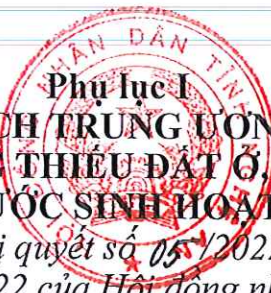 Phụ lục I
CH TRUNG ƯƠN
THIẾU ĐẤT Ở,
ƯỚC SINH HOẠT
i quyết số 05 /202
22 của Hội đồng n
NHÂN DÂN TỈNH